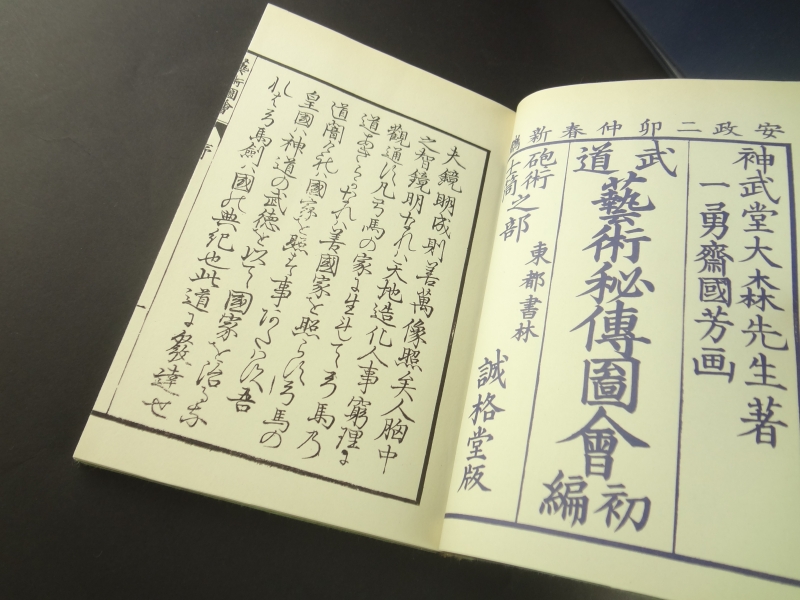 安政二卯仲春新
神武堂大森先生著
一勇齋國芳画
武道
藝術秘傳圖會
初編
砲術
之部
東都書林
誠格堂版
夫鏡明成則善萬像照矣人胸中
之智鏡明なれハ天地造化人事窮理に
觀通す凡弓馬の家に生れて弓馬乃
道あきらかなれハ善國家を照らす弓馬の
道闇けれハ國家を照す事あたハす吾
皇國ハ神道の武徳を以て國家を治る
弓馬劍ハ國の典紀也此道に
達せ